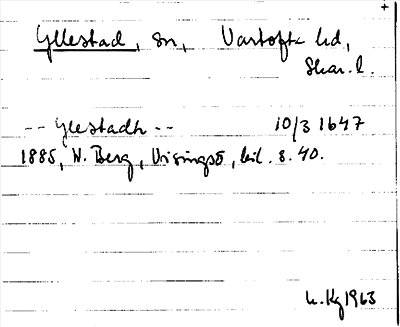 +
Yllestad, sn, Vartofta hd,
Skar. l.
-- Yllestadh -- 10/3 1647
1885, W. Berg, Visingsö, bil. s. 40.
L. Kg 1963